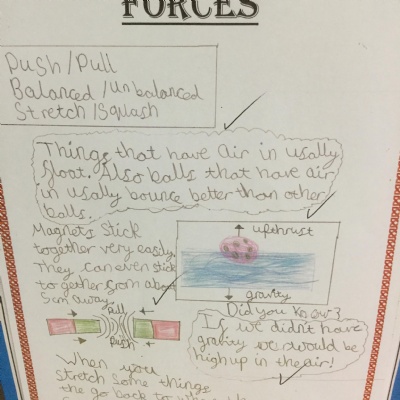 FORCES
Push/Pull
Balanced/unbalanced
Stretch/Squash
Things that have air in usally
float. Also balls that have air
in usally bounce better than other
balls.
Magnets stick
together very easily.
They can even stick
together from abou
5cm away.
Pull
Push
upthrust
gravity
Did you know?
If we didn't have
gravity we would be
high up in the air!
When you
stretch some things
the go back to